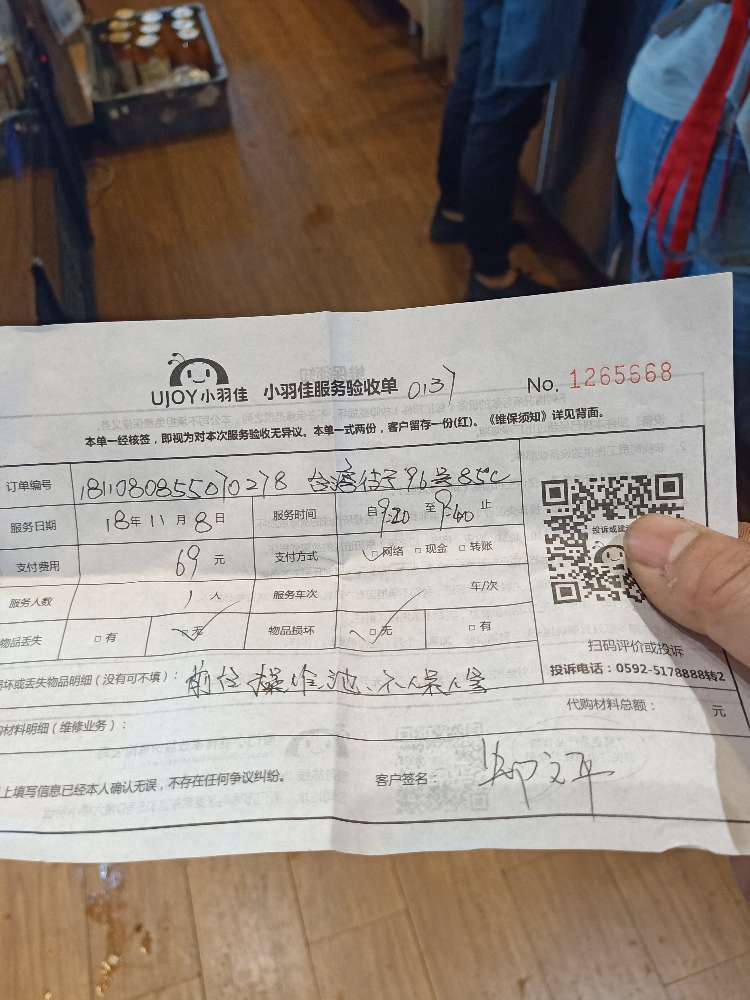 UJOY小羽佳 小羽佳服务验收单 0137 No. 1265668
本单一经核签，即视为对本次服务验收无异议。本单一式两份，客户留存一份(红)。《维保须知》详见背面。
订单编号 1811080855070278 台湾街96号85C
服务日期 18年11月8日 服务时间 自9:20至9:40止
支付费用 69元 支付方式 ☑网络 □现金 □转账
服务人数 1人 服务车次 年/次
物品丢失 □有 ☑无 物品损坏 ☑无 □有
投诉或建
扫码评价或投诉
投诉电话：0592-5178888转2
坏或丢失物品明细（没有可不填）：前台操作池、不保
代购材料总额： 元
材料明细（维修业务）：
上填写信息已经本人确认无误，不存在任何争议纠纷。 客户签名：